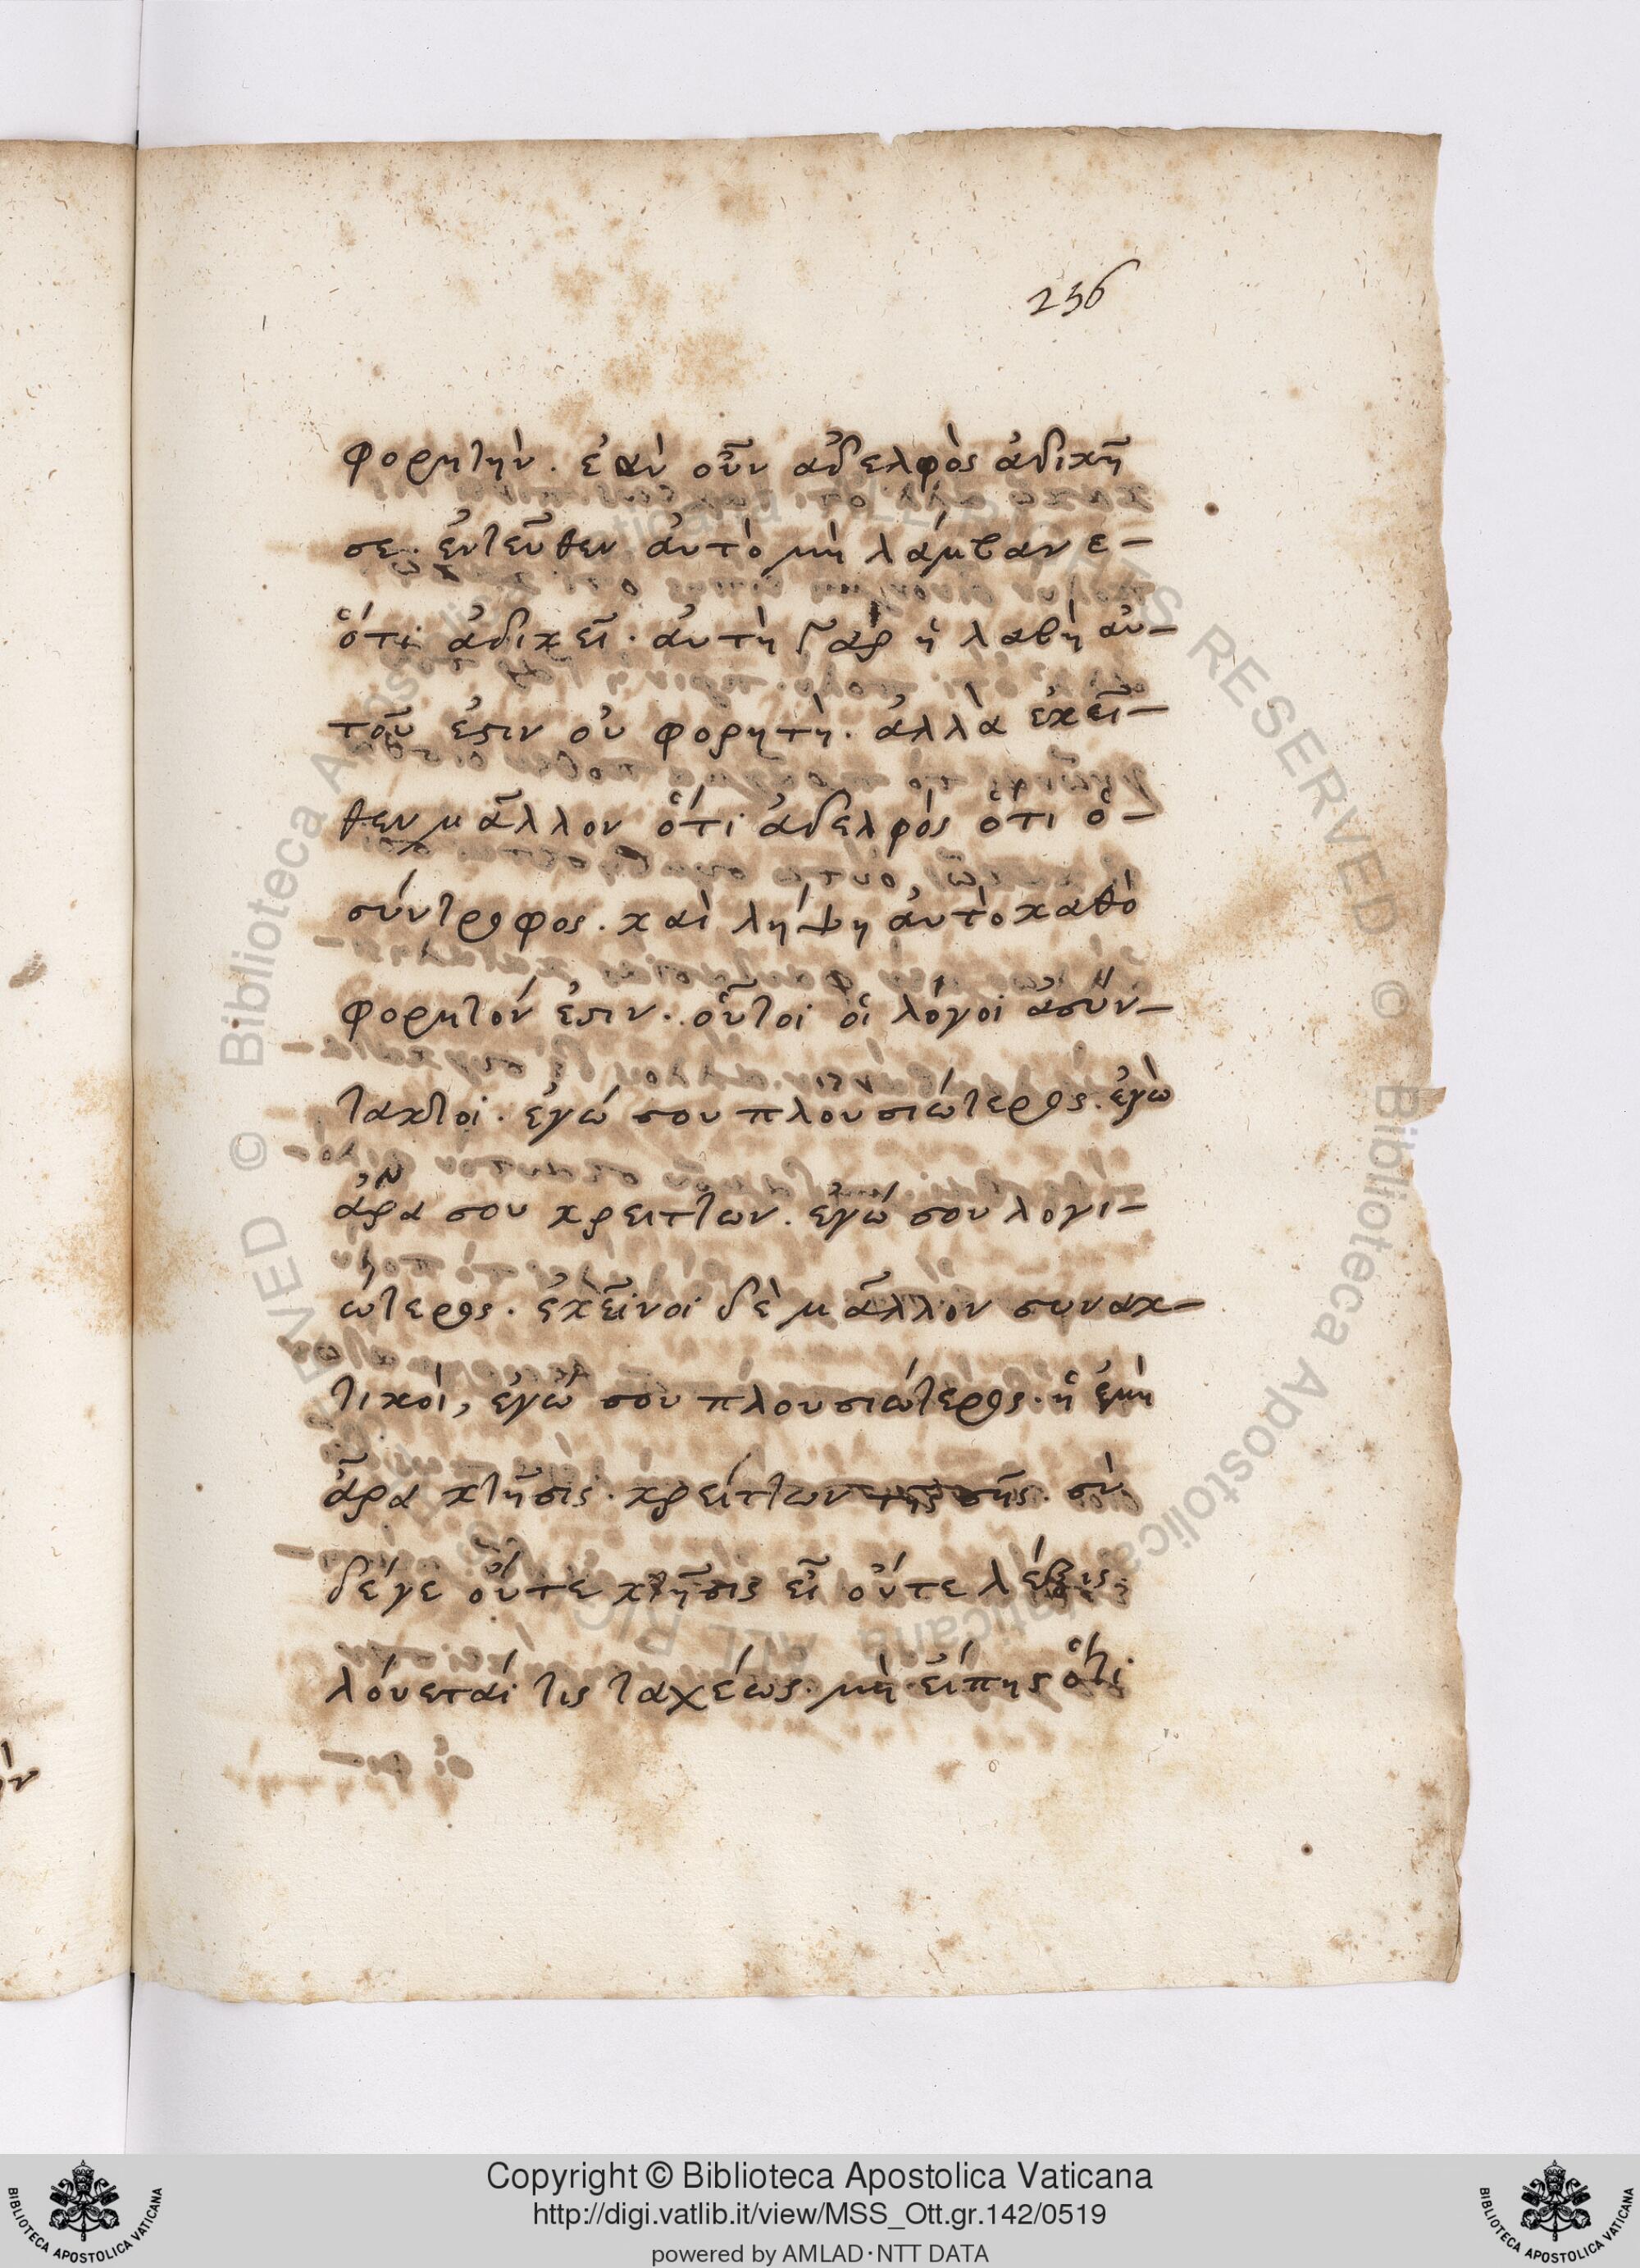 256
φορητὴν. ἐὰν οὖν ἀδελφὸς ἀδικῇ
σε. ἐντεῦθεν ἀυτὸ μὴ λάμβανε-
ὅτι ἀδικεῖ. ἀυτὴ γὰρ ἡ λαβὴ ἀυ-
τοῦ ἐστιν οὐ φορητὴ. ἀλλὰ ἐκεῖ-
θεν μᾶλλον ὅτι ἀδελφός ὅτι ὁ-
σύντροφος. καὶ λήψη ἀυτὸ καθὸ
φορητόν ἐστιν. οὗτοι οἱ λόγοι ἀσύν-
τακτοι. ἐγώ σου πλουσιώτερος. ἐγὼ
ἆρα σου κρειττων. ἐγώ σου λογι-
ώτερος. ἐκεῖνοι δὲ μᾶλλον συνακ-
τικοὶ, ἐγώ σου πλουσιώτερος. ἡ ἐμὴ
ἆρα κτῆσις. κρείττων της σῆς. σὺ
δέγε οὔτε κτῆσις εἶ οὔτε λέξις.
λόυεταί τις ταχέως. μὴ εἴπης ὅτι
Copyright © Biblioteca Apostolica Vaticana
http://digi.vatlib.it/view/MSS_Ott.gr.142/0519
powered by AMLAD·NTT DATA
BIBLIOTECA APOSTOLICA VATICANA
BIBLIOTECA APOSTOLICA VATICANA